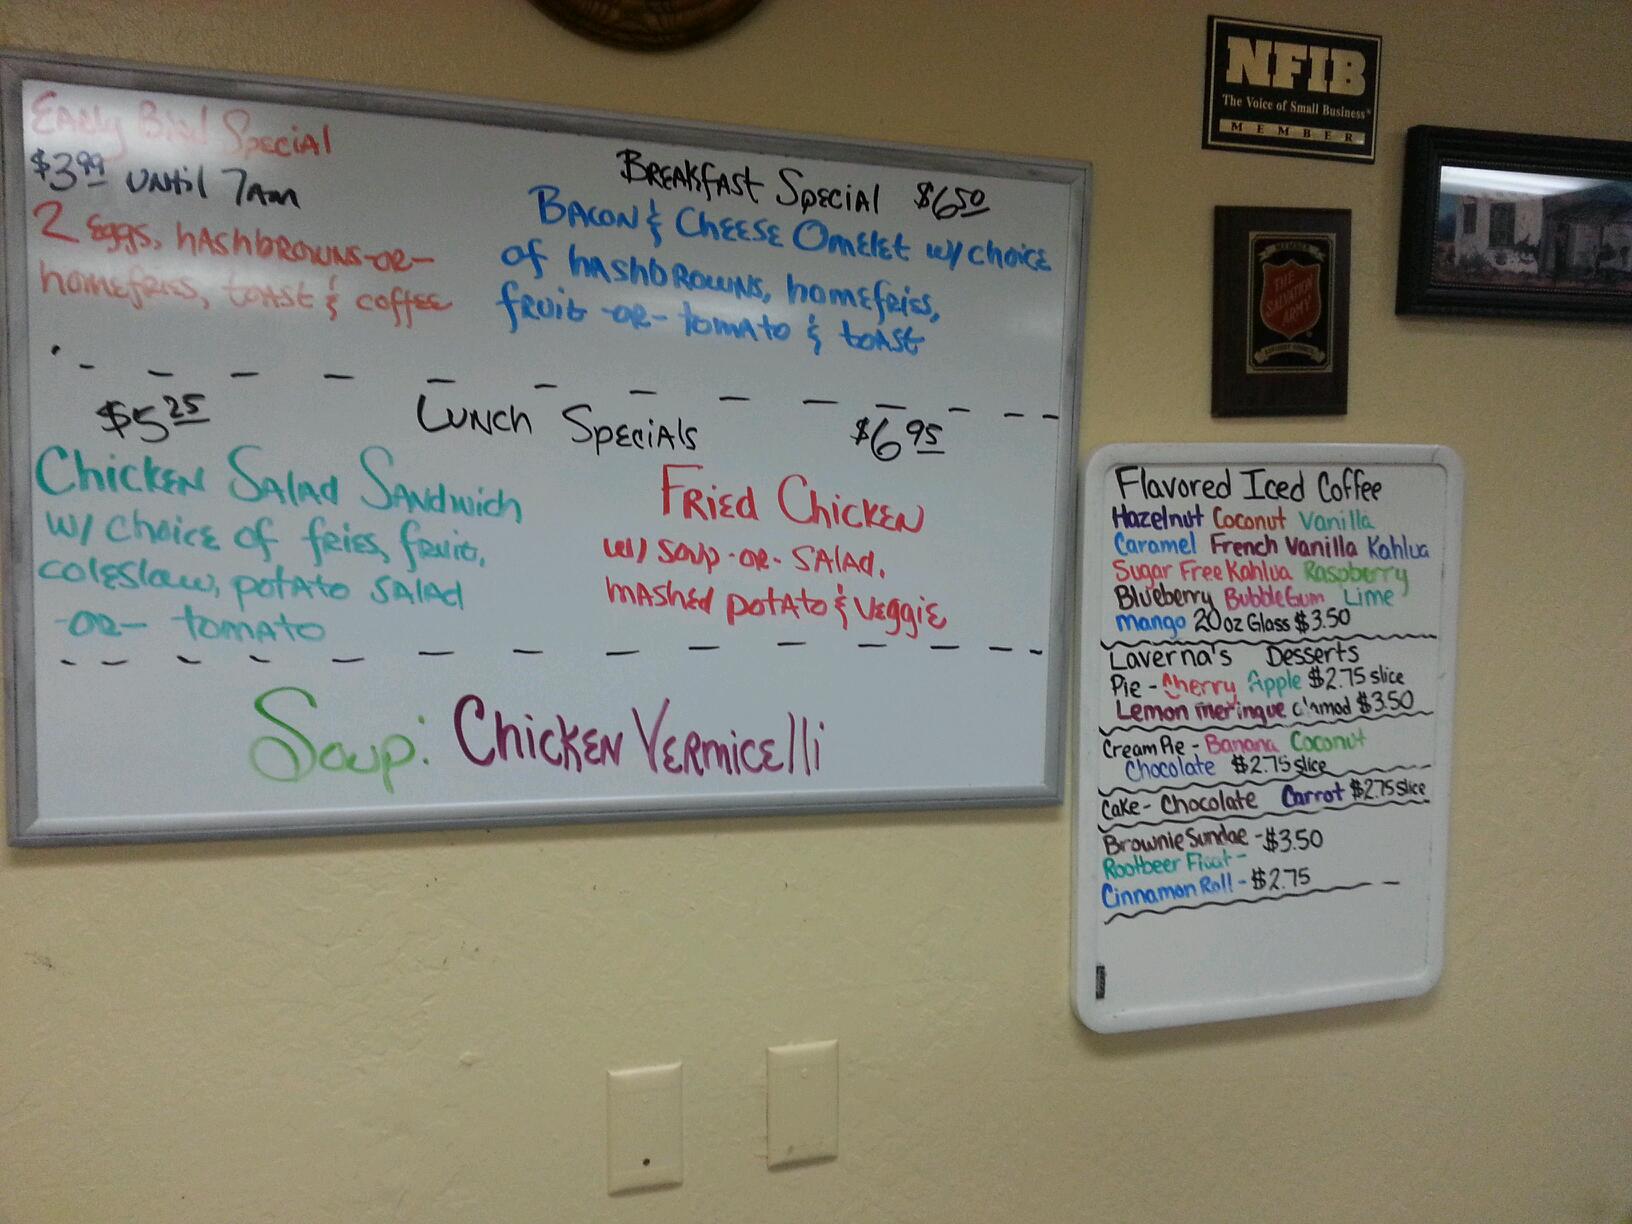 Early Bird Special
$3.99 until 7am
2 eggs, hashbrowns-or-
homefries, toast & coffee
Breakfast Special $6.50
Bacon & Cheese Omelet w/ choice
of hashbrowns, homefries,
fruit -or- tomato & toast
$5.25 Lunch Specials $6.95
Chicken Salad Sandwich
w/ choice of fries, fruit,
coleslaw, potato salad
-or- tomato
Fried Chicken
w/ soup-or-salad,
mashed potato & veggie
Soup: Chicken Vermicelli
NFIB
The Voice of Small Business®
MEMBER
MEMBER
THE
SALVATION
ARMY
Flavored Iced Coffee
Hazelnut Coconut Vanilla
Caramel French Vanilla Kahlua
Sugar Free Kahlua Raspberry
Blueberry BubbleGum Lime
mango 20oz Glass $3.50
Laverna's Desserts
Pie - Cherry Apple $2.75 slice
Lemon meringue $3.50
Cream Pie - Banana Coconut
Chocolate $2.75 slice
Cake - Chocolate Carrot $2.75 slice
Brownie Sundae - $3.50
Rootbeer Float -
Cinnamon Roll - $2.75